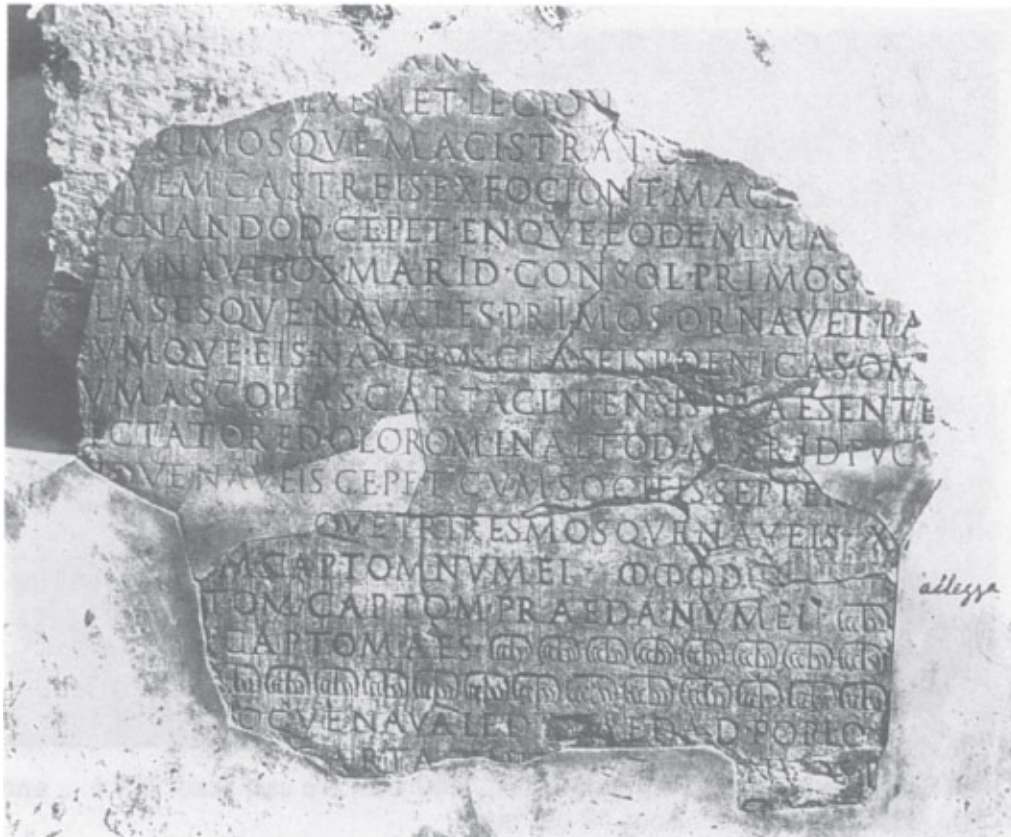 EXEMET·LEGION
XIMOSQVE·MACISTRATO
VEM·CASTREIS·EXFOCIONT·MACE
CNANDOD·CEPET·ENQVE·EODEM·MA
EM·NAVEBOS·MARID·CONSOL·PRIMOS
LASESQVE·NAVALES·PRIMOS·ORNAVET·PA
VMQVE·EIS·NAVEBOS·CLASEIS·POENICAS·OM
VMAS·COPIAS·CARTACINIENSIS·PRAESENTE
ICTATORED·OLOROM·IN·ALTOD·MARID·PVC
QVE·NAVEIS·CEPET·CVM·SOCIEIS·SEPTER
QVE·TRIRESMOSQVE·NAVEIS·X
M·CAPTOM·NVMEI ↀↀↀDCC
TOM·CAPTOM·PRAEDA·NVMEI ↈ
CAPTOM·AES ↈↈↈↈↈↈↈↈ
OQVE·NAVALED PRAEDAD·POPLOM
ARTA